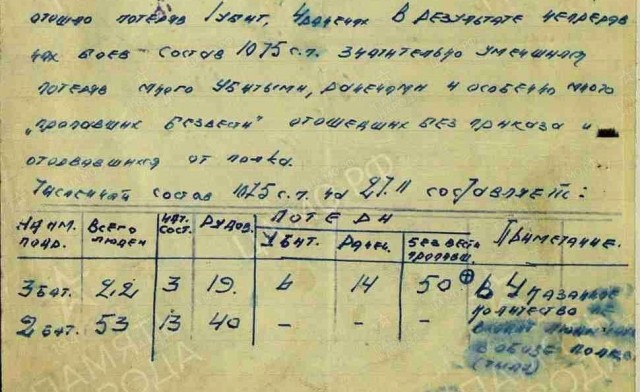 отошло потеряв 1 убит, 4 ранен. В результате непрерыв
ных боев состав 1075 с.п. значительно уменшился
потеряв много убитыми, ранеными и особенно много
„пропавших безвести" отошедших без приказа и
оторвавшихся от полка.
Численный состав 1075 с.п. на 27.11 составляет:
Наим. подр. Всего людей Нач. сост. Рядов. Потери Убит. Ранен. Без вести пропавш. Примечание.
3 бат. 22 3 19. 6 14 50 ⊕ В указанное
количество не
2 бат. 53 13 40 - - -
в обозе полка
(тылы)